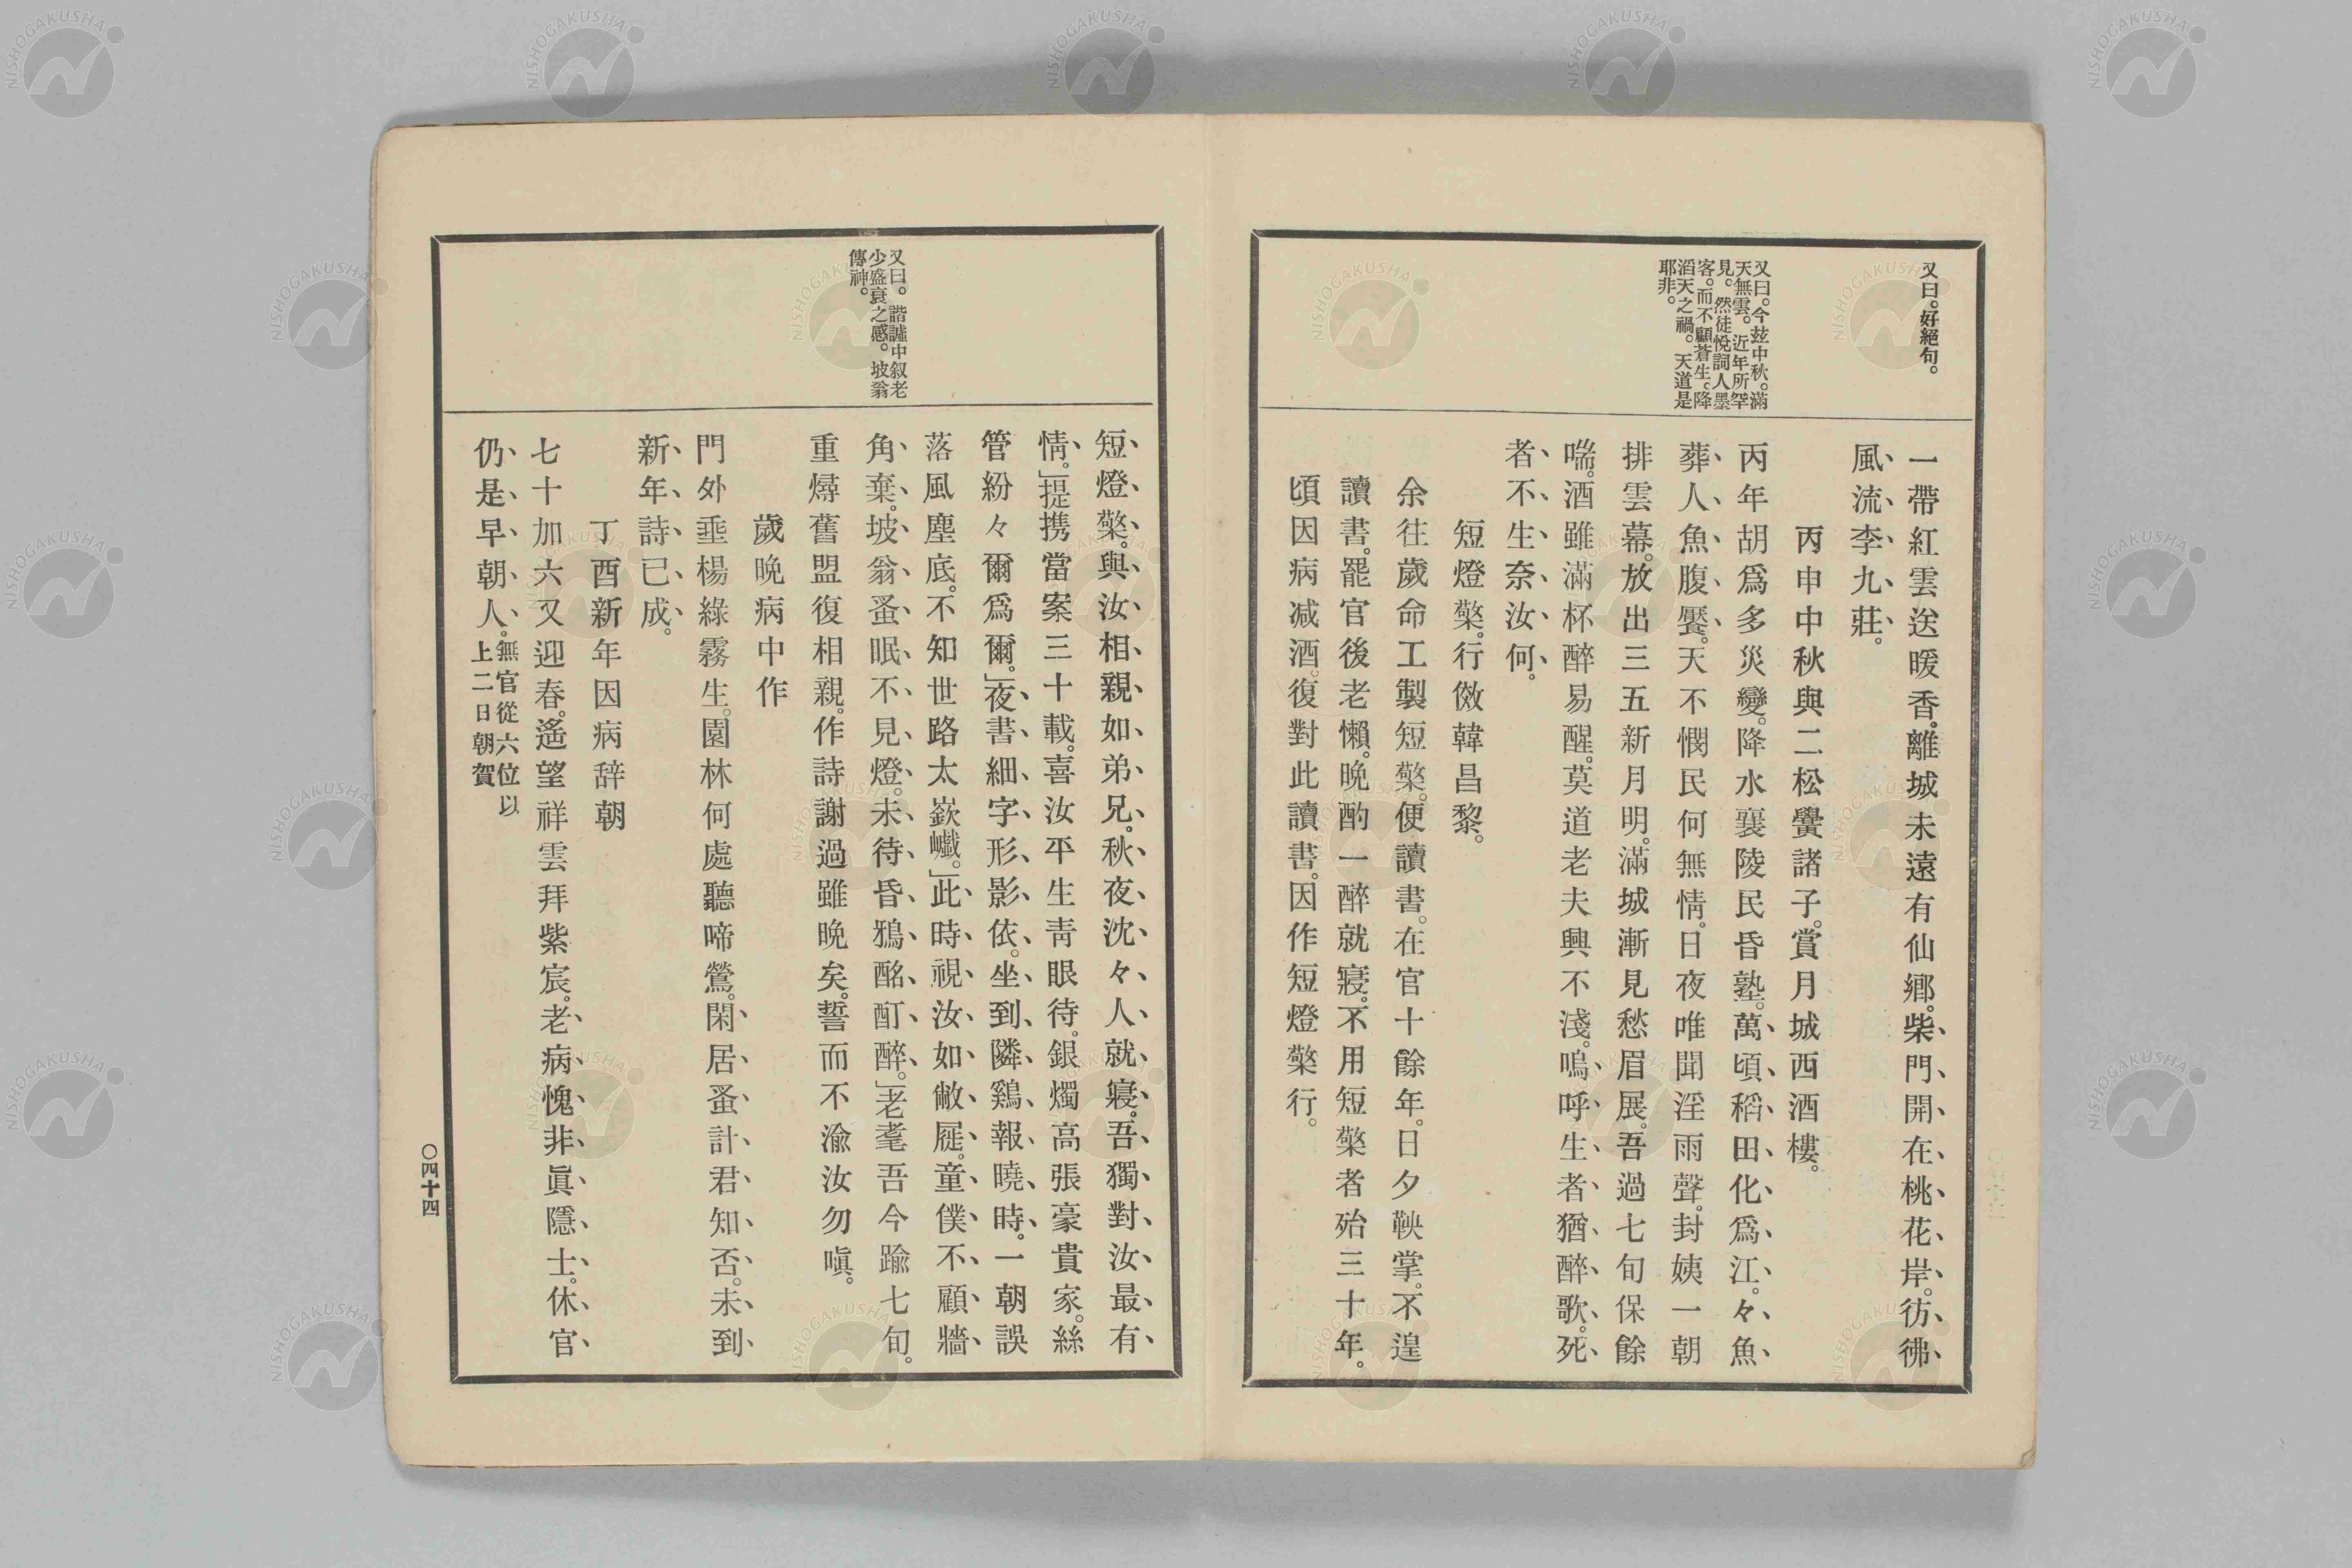 又曰。好絕句。
又曰。今玆中秋。滿
天無雲。近年所罕
見。然徒悅詞人墨
客。而不顧蒼生。降
滔天之禍。天道是
耶非。
一帶紅雲送暖香。離城未遠有仙鄉。柴門開在桃花岸。彷彿
風流李九莊。
丙申中秋與二松黌諸子。賞月城西酒樓。
丙年胡爲多災變。降水襄陵民昏墊。萬頃稻田化爲江。々魚
葬人魚腹饜。天不憫民何無情。日夜唯聞淫雨聲。封姨一朝
排雲幕。放出三五新月明。滿城漸見愁眉展。吾過七旬保餘
喘。酒雖滿杯醉易醒。莫道老夫興不淺。嗚呼生者猶醉歌。死
者不生奈汝何。
短燈檠。行傚韓昌黎。
余往歲命工製短檠。便讀書。在官十餘年。日夕鞅掌。不遑
讀書。罷官後老懶。晩酌一醉就寢。不用短檠者殆三十年。
頃因病减酒。復對此讀書。因作短燈檠行。
又曰。諧謔中叙老
少盛衰之感。坡翁
傳神。
短燈檠。與汝相親如弟兄。秋夜沈々人就寢。吾獨對汝最有
情。」提携當案三十載。喜汝平生靑眼待。銀燭高張豪貴家。絲
管紛々爾爲爾。」夜書細字形影依。坐到隣鷄報曉時。一朝誤
落風塵底。不知世路太嶔巇。」此時視汝如敝屣。童僕不顧牆
角棄。坡翁蚤眠不見燈。未待昏鴉酩酊醉。」老耄吾今踰七旬。
重燖舊盟復相親。作詩謝過雖晩矣。誓而不渝汝勿嗔。
歲晩病中作
門外垂楊綠霧生。園林何處聽啼鶯。閑居蚤計君知否。未到
新年詩已成。
丁酉新年因病辞朝
七十加六又迎春。遙望祥雲拜紫宸。老病愧非眞隱士。休官
仍是早朝人。無官從六位以
上二日朝賀
〇四十四